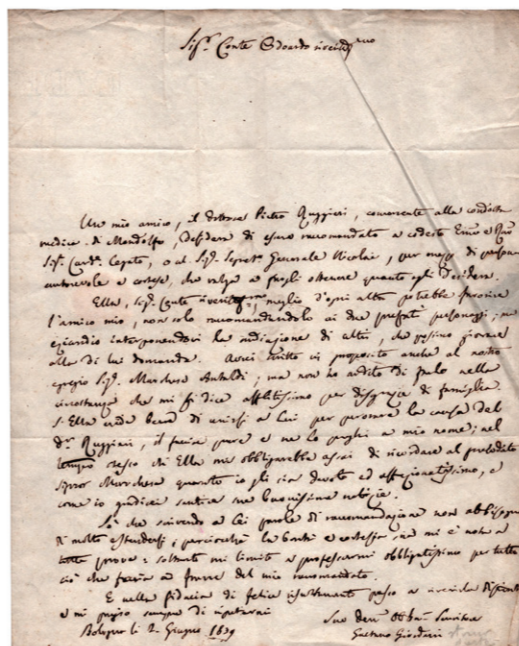 Sig.r Conte Odoardo riverit.mo
Un mio amico, il dottore Pietro Ruggieri, concorrente alla condotta
medica di Mondolfo, desidera di essere raccomandato a codesto Emo e Rmo
Sig.r Card.e Legato, o al Sig.r Segret.o Generale Nicolai, per mezzo di persona
autorevole e cortese, che valga a fargli ottenere quanto egli desidera.
Ella, sig.r Conte, meglio d'ogni altro potrebbe favorire
l'amico mio, non solo raccomandandolo ai due prefati personaggi; ma
eziandio interponendovi la mediazione di altri, che possino giovare
alla di lui domanda. Avrei scritto in proposito anche al nostro
egregio Sig.r Marchese Antaldi; ma non ho ardito di farlo nella
circostanza che mi si dice afflittissimo per disgrazie di famiglia.
S'Ella crede bene di unirsi a Lui per perorare la causa del
d.r Ruggieri, il faccia pure e ne lo preghi a mio nome; nel
tempo stesso ch'Ella mi obbligarebbe assai di ricordare al prelodato
signor Marchese quanto io gli sia devoto ed affezionatissimo, e
come io giudichi
So che scrivendo a Lei parole di raccomandazione non abbisogna
di molto estendersi; perciocchè la bontà e cortesia sua mi è nota a
prova: soltanto mi limito a professarmi obbligatissimo per tutto
ciò che faccia a favore del mio raccomandato.
E nella fiducia di felice passo a
e mi pregio sempre di ripetermi
Bologna li 2 Giugno 1839
Suo dev.mo Obb.mo Servitore
Gaetano Giordani